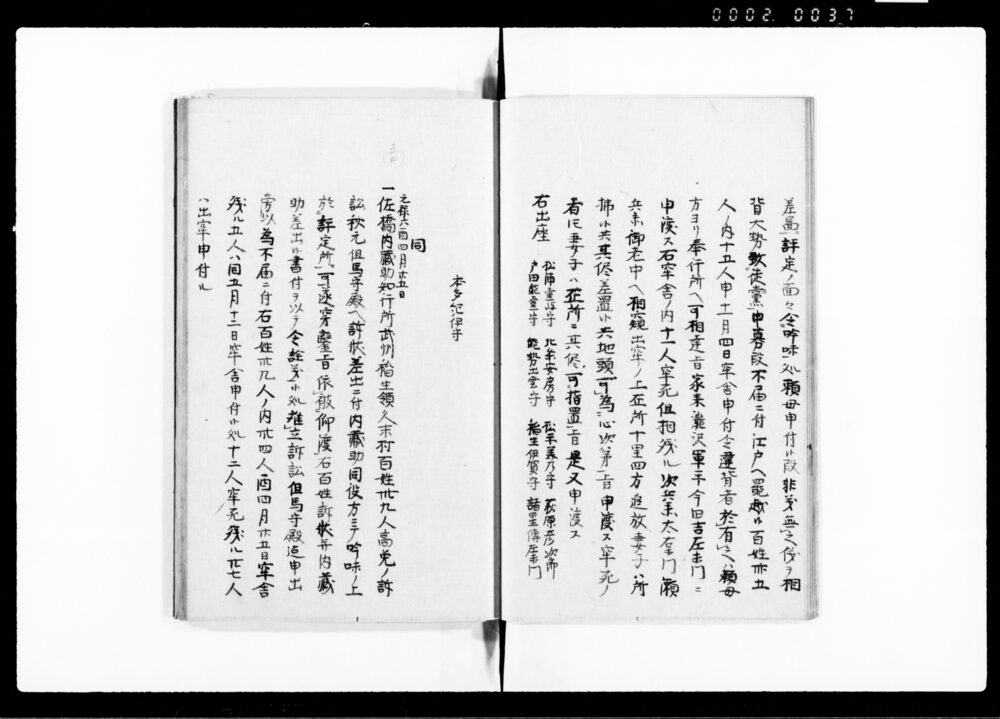 0002.0037
差圖評定ノ面々令吟味処頼母申付候段非分無之儀ヲ相
背大勢致徒黨申募段不届ニ付江戸ヘ罷越候百姓卅五
人ノ内十五人申十一月四日牢舎申付令違背者於有之ハ頼母
方ヨリ奉行所ヘ可相達旨家来瀧沢軍平今田吉左衛門ニ
申渡ス右牢舎ノ内十一人牢死但相残ル次兵衛太右衛門瀬
兵衛御老中ヘ相窺出牢ノ上在所十里四方追放妻子ハ所
拂候共其侭差置候共地頭可為心次第旨申渡ス牢死ノ
者ノ妻子ハ在所ニ其侭可指置旨是又申渡ス
右出座
松浦壹岐守 北条安房守 松平美乃守 萩原彦次郎
戸田能登守 能勢出雲守 稲生伊賀守 諸星傳左衛門
本多紀伊守
同
元禄六酉四月廿五日
一佐橋内蔵助知行所武州稲生領久末村百姓卅九人高免ノ訴
訟秋元但馬守殿ヘ訴状差出ニ付内蔵助同役方ニテ吟味ノ上
於評定所可遂穿鑿旨依被仰渡右百姓訴状并内蔵
助差出候書付ヲ以テ令詮義候処難立訴訟但馬守殿迄申出
旁以為不届ニ付右百姓卅九人ノ内廿四人酉四月廿五日牢舎
残ル五人ハ同五月十二日牢舎申付候処十二人牢死残ル廿七人
ハ出牢申付ル